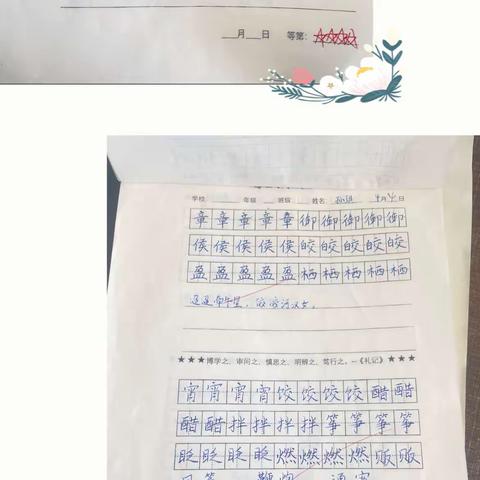 月 日 等第:
学校 年级 班级 姓名 月 日
章章章章章御御御御御
侯侯侯侯侯皎皎皎皎皎
盈盈盈盈盈栖栖栖栖栖
迢迢牵牛星,皎皎河汉女。
★★★博学之,审问之,慎思之,明辨之,笃行之。—《礼记》★★★
宵宵宵宵饺饺饺饺醋醋
醋醋拌拌拌拌筝筝筝筝
眨眨眨眨燃燃燃燃贩贩
鞭炮 通宵